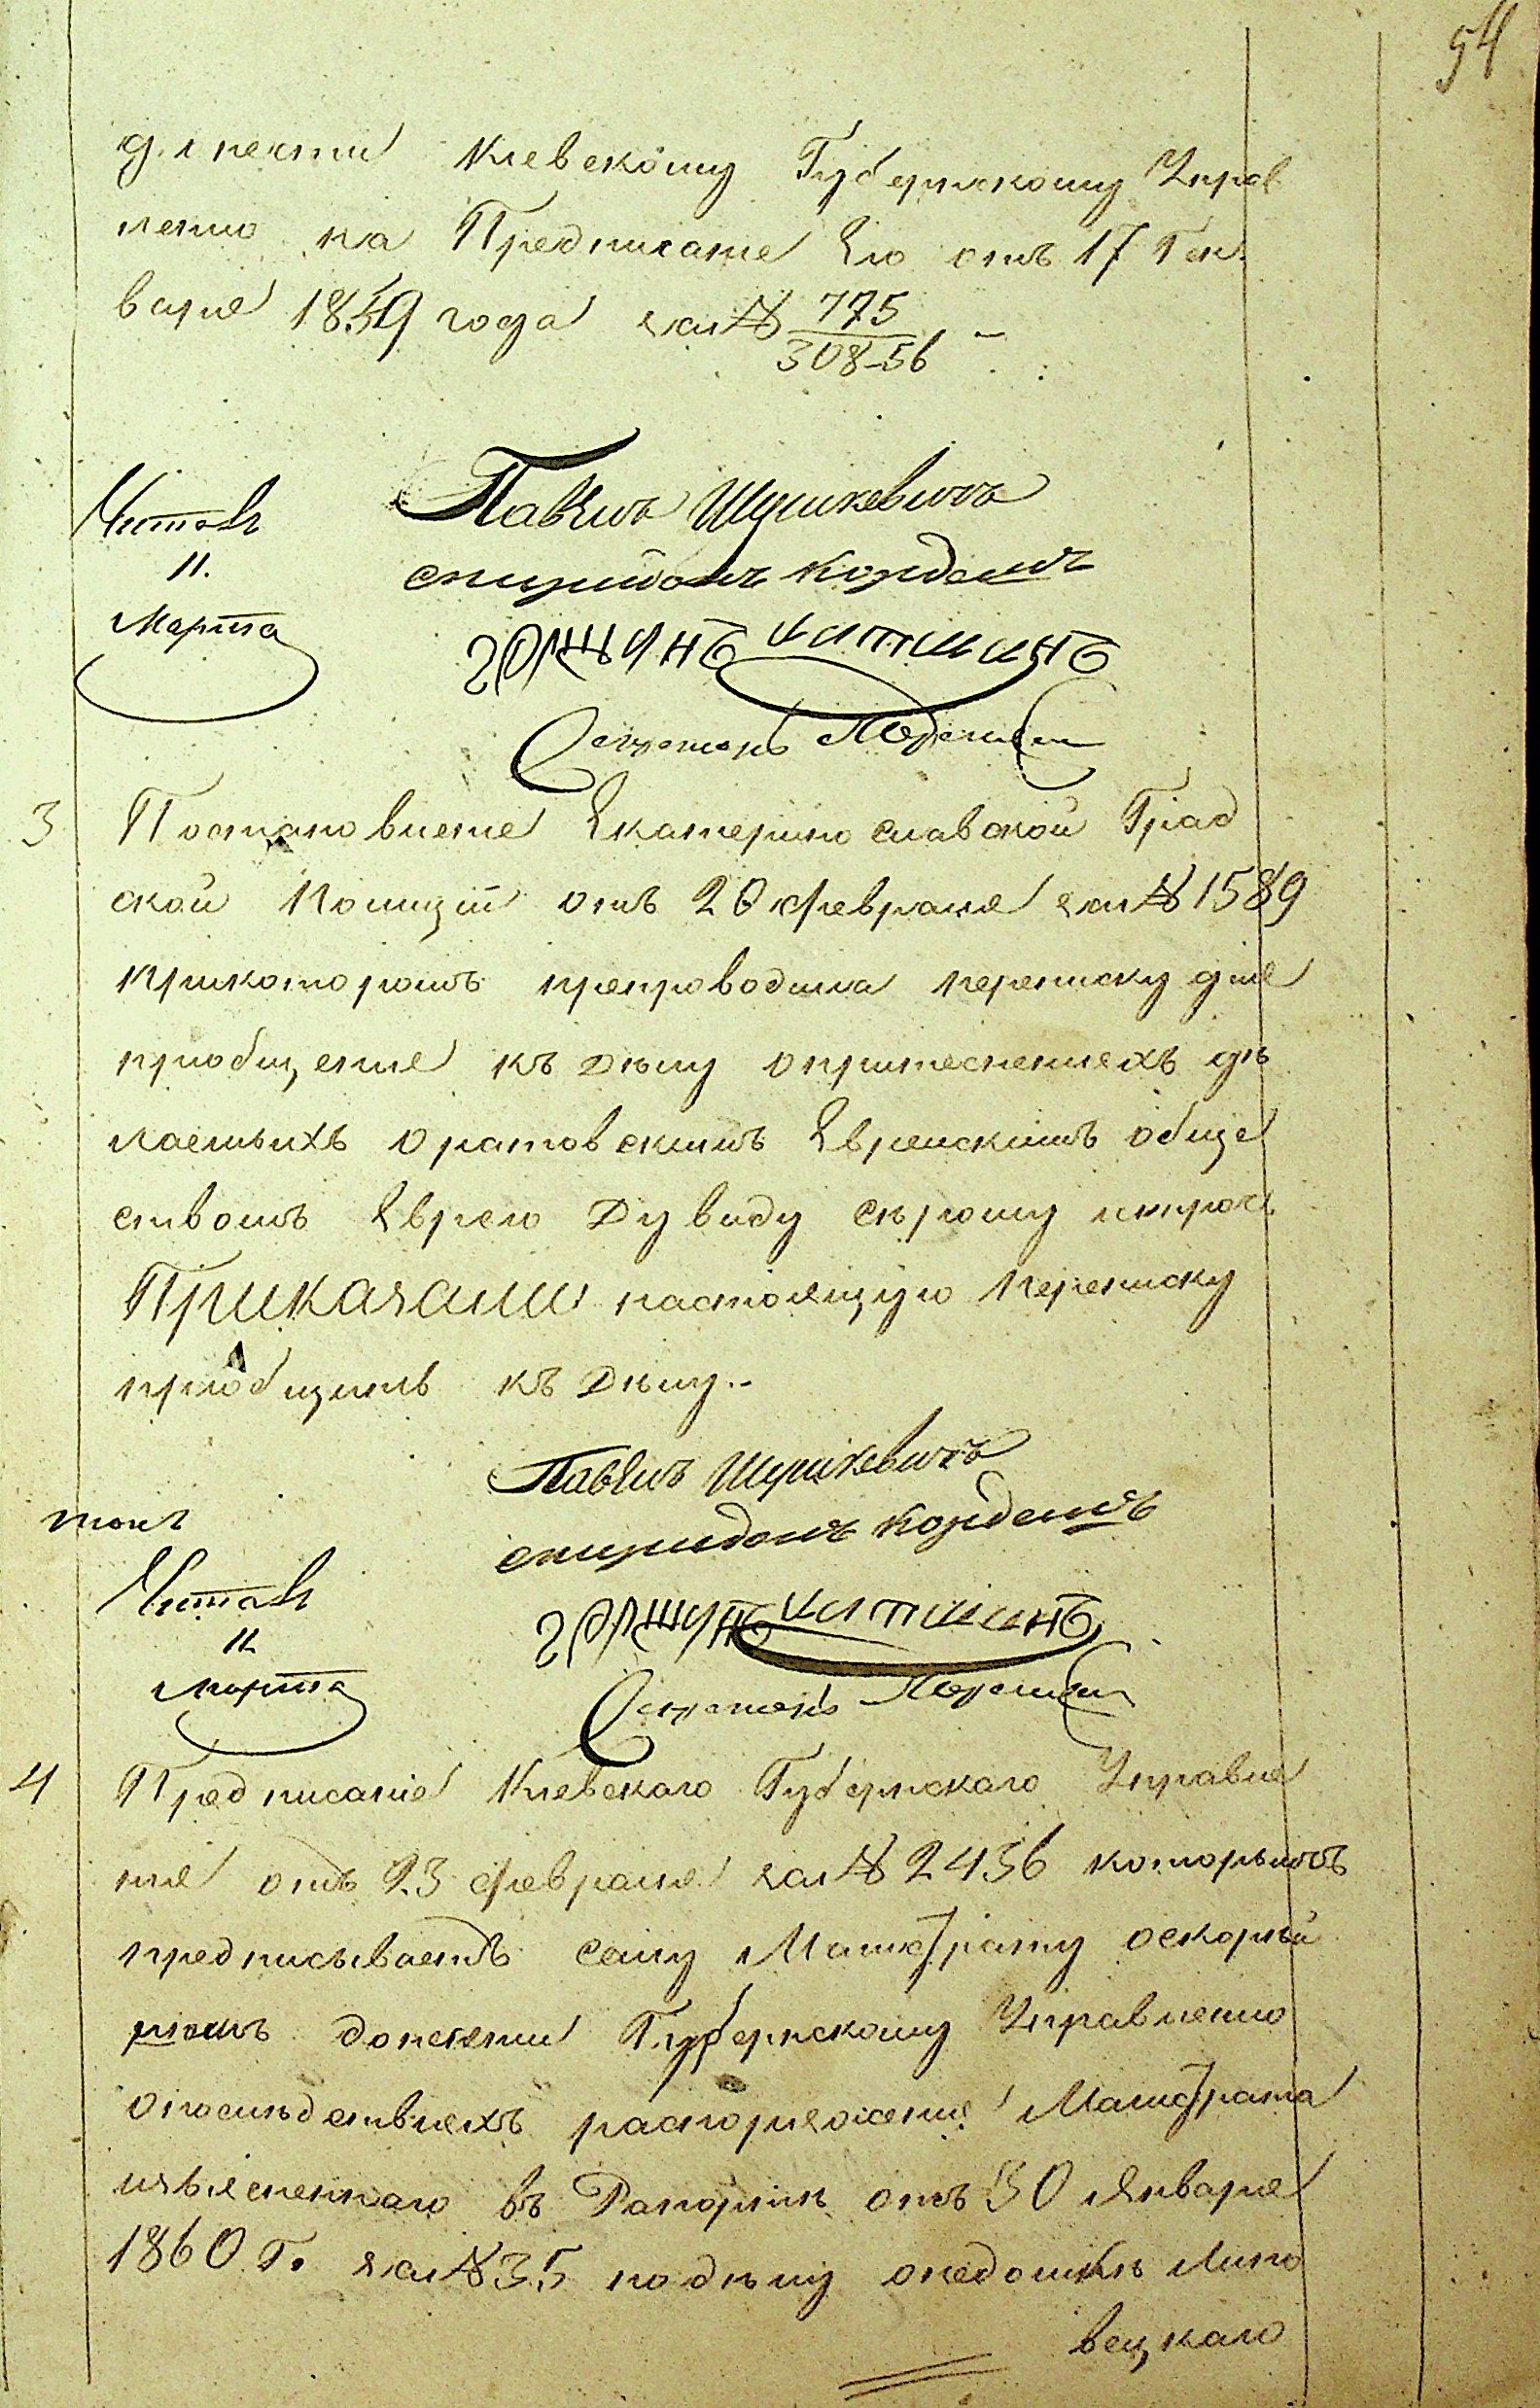 54
донести Кіевскому Губернскому Управ
ленію на Предписаніе Его отъ 17 Ген
варя 1859 года за № 775
308-56
Читалъ
11.
Марта
Павелъ Шушкевичъ
спиридонъ корденъ
Секретарь
3
Постановленіе Екатеринославской Град
ской Полиціи отъ 20 февраля за № 1589
прикоторомъ препроводила переписку для
пріобщенія къ дѣлу опритесненіяхъ дѣ
лаемыхъ оратовскимъ Еврейскимъ обще
ствомъ Еврею Дувиду Сѣрому ипроч
Приказали настоящую переписку
пріобщить къ дѣлу.-
Павелъ Шушкевичъ
спиридонъ корденъ
Читалъ
11
марта
Секретарь
4
Предписаніе Кіевскаго Губернскаго Управле
нія отъ 23 февраля за № 2436 которымъ
предписываетъ сему Магистрату оскорѣй
шемъ донесеніи Губернскому Управленію
опоследствіяхъ распоряженія Магистрата
изъясненнаго въ Рапортѣ отъ 30 Января
1860 Г. за № 35 подѣлу онедоимкѣ Липо
вецкаго